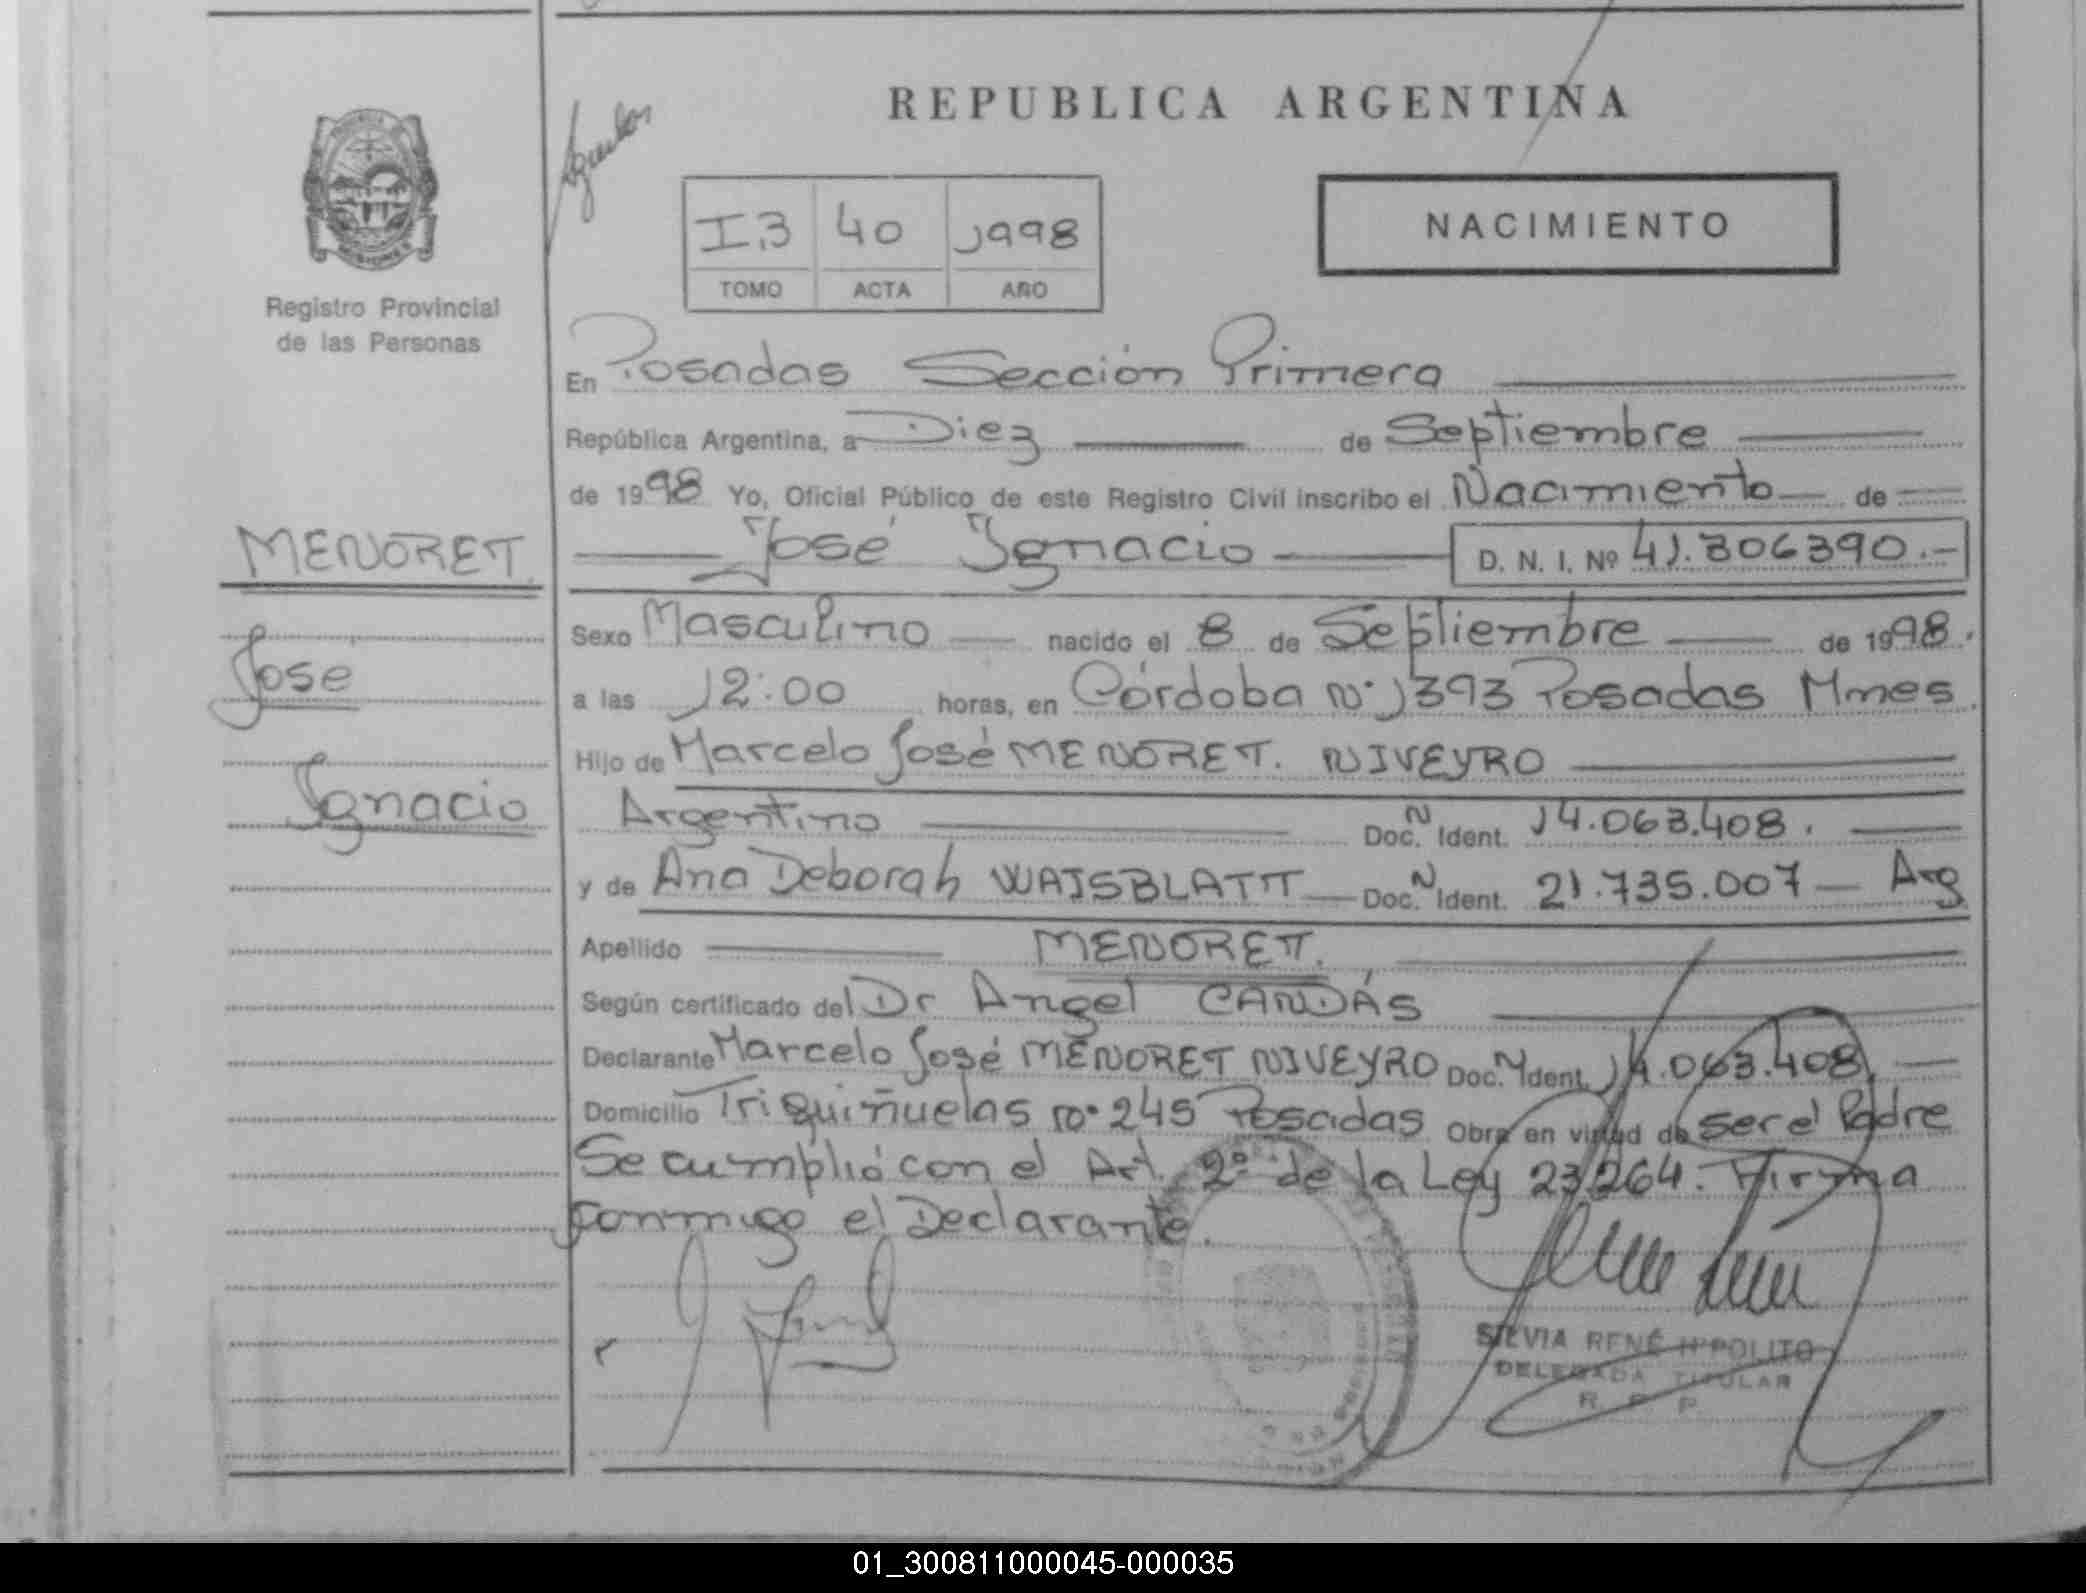 REPUBLICA ARGENTINA
I.3 40 1998
TOMO ACTA AÑO
NACIMIENTO
Registro Provincial
de las Personas
MENORET.
José
Ignacio
En Posadas Sección Primera
República Argentina, a Diez de Septiembre
de 1998 Yo, Oficial Público de este Registro Civil inscribo el Nacimiento de
José Ignacio D. N. I. Nº 41.306390.-
Sexo Masculino nacido el 8 de Septiembre de 1998.
a las 12:00 horas, en Córdoba Nº 1393 Posadas Mnes.
Hijo de Marcelo José MENORET. NIVEYRO
Argentino Doc. N Ident. 14.063.408.
y de Ana Deborah WAISBLATT Doc. N Ident. 21.735.007 - Arg
Apellido MENORET.
Según certificado del Dr Angel CANDÁS
Declarante Marcelo José MENORET NIVEYRO Doc. N Ident. 14.063.408.
Domicilio Triquiñuelas nº 245 Posadas Obra en virtud de ser el Padre
Se cumplió con el Art. 2º de la Ley 23264. Firma
conmigo el Declarante.
SILVIA RENÉ HIPOLITO
DELEGADA TITULAR
R. P. P.
01_300811000045-000035